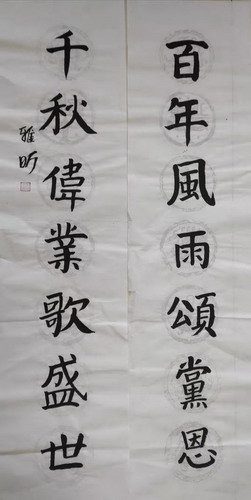 百年風雨頌黨恩
千秋偉業歌盛世
雅昕